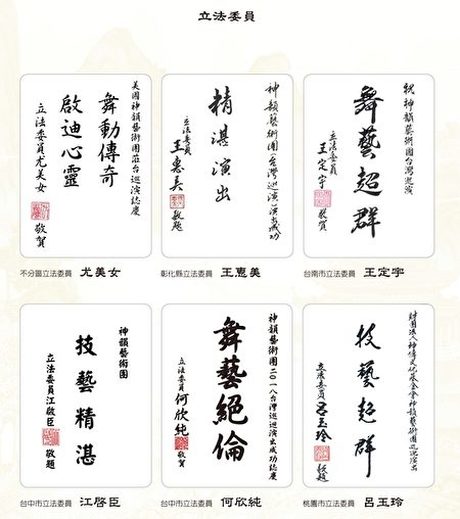 立法委員
美國神韻藝術團莅台巡演誌慶
舞動傳奇
啟迪心靈
立法委員尤美女
敬賀
不分區立法委員 尤美女
神韻藝術團(台灣巡演)演出成功
精湛演出
立法委員
王惠美
敬題
彰化縣立法委員 王惠美
祝 神韻藝術團台灣巡演
舞藝超群
立法委員
王定宇
敬賀
台南市立法委員 王定宇
神韻藝術團
技藝精湛
立法委員江啟臣
敬題
台中市立法委員 江啓臣
神韻藝術團二〇一八台灣巡迴演出成功誌慶
舞藝絕倫
立法委員何欣純
敬賀
台中市立法委員 何欣純
財團法人神傳文化基金會神韻藝術團巡迴演出
技藝超群
立法委員呂玉玲
敬題
桃園市立法委員 呂玉玲